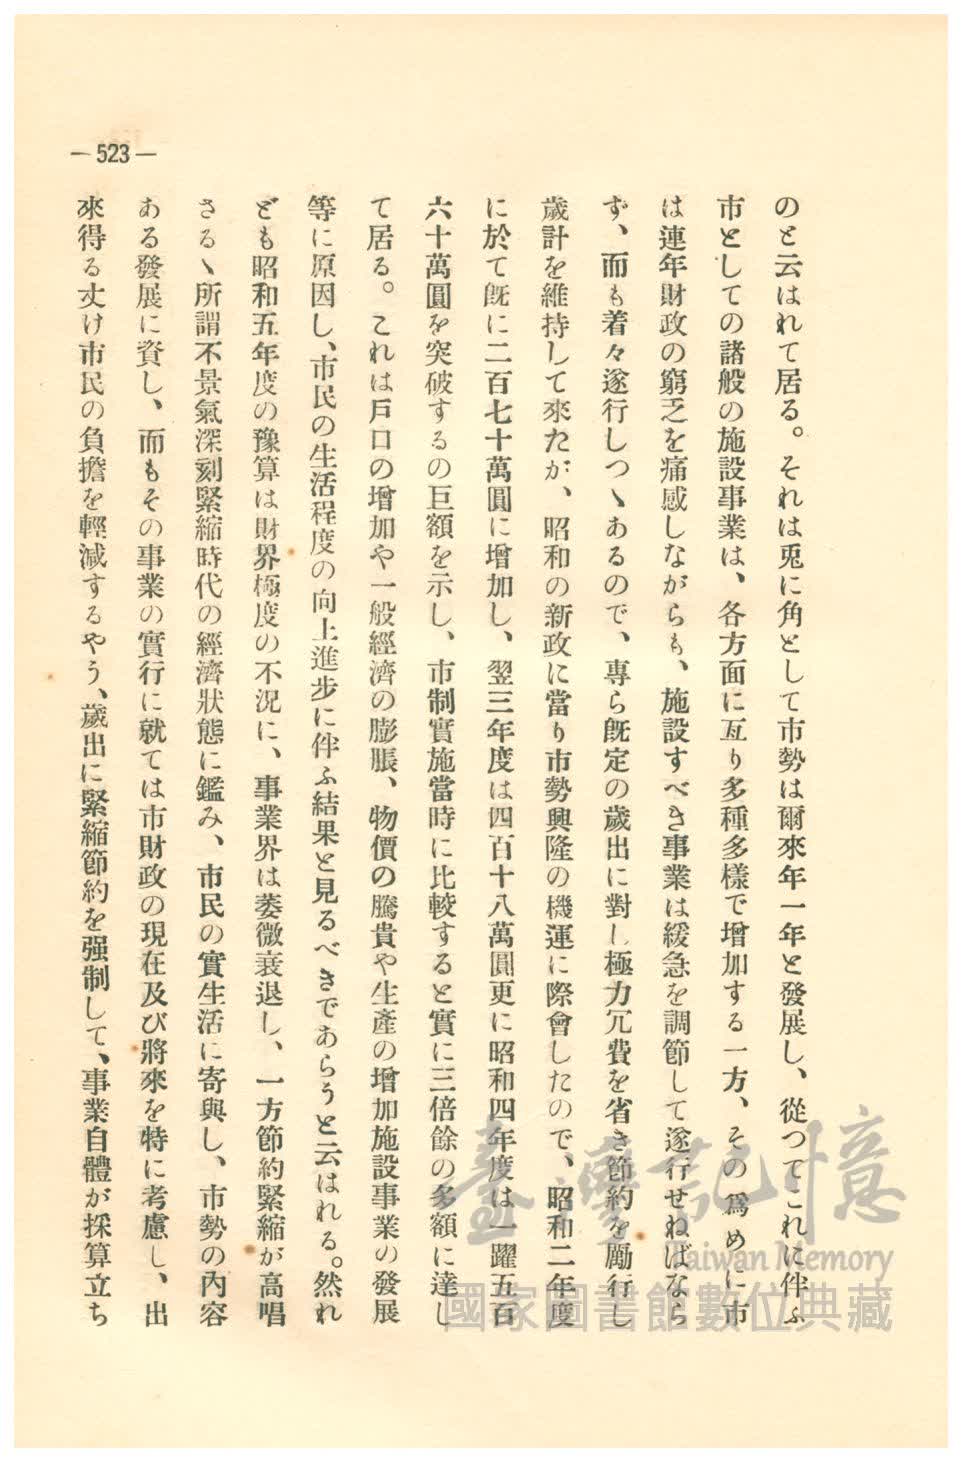 — 523 —
のと云はれて居る。それは兎に角として市勢は爾來年一年と發展し、從つてこれに伴ふ
市としての諸般の施設事業は、各方面に亙り多種多樣で增加する一方、その爲めに市
は連年財政の窮乏を痛感しながらも、施設すべき事業は緩急を調節して遂行せねばなら
ず、而も着々遂行しつゝあるので、專ら既定の歲出に對し極力冗費を省き節約を勵行し
歲計を維持して來たが、昭和の新政に當り市勢興隆の機運に際會したので、昭和二年度
に於て既に二百七十萬圓に增加し、翌三年度は四百十八萬圓更に昭和四年度は一躍五百
六十萬圓を突破するの巨額を示し、市制實施當時に比較すると實に三倍餘の多額に達し
て居る。これは戶口の增加や一般經濟の膨脹、物價の騰貴や生產の增加施設事業の發展
等に原因し、市民の生活程度の向上進步に伴ふ結果と見るべきであらうと云はれる。然れ
ども昭和五年度の豫算は財界極度の不況に、事業界は萎微衰退し、一方節約緊縮が高唱
さるゝ所謂不景氣深刻緊縮時代の經濟狀態に鑑み、市民の實生活に寄與し、市勢の內容
ある發展に資し、而もその事業の實行に就ては市財政の現在及び將來を特に考慮し、出
來得る丈け市民の負擔を輕減するやう、歲出に緊縮節約を强制して、事業自體が採算立ち
臺灣記憶
Taiwan Memory
國家圖書館數位典藏